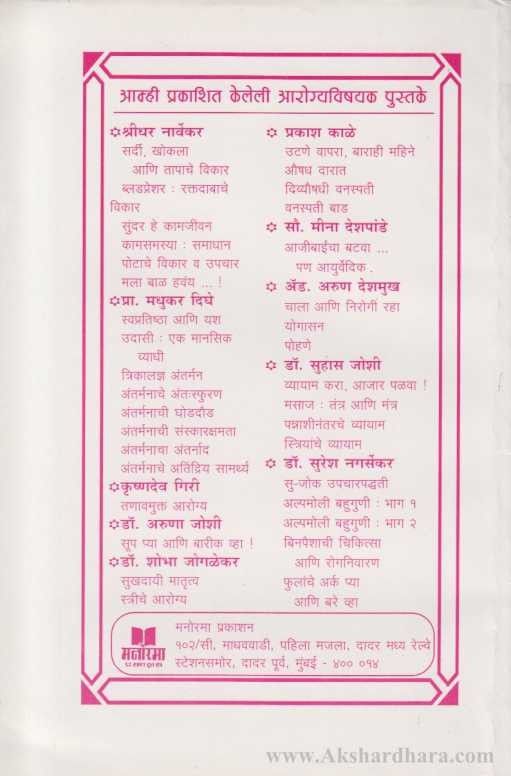 आम्ही प्रकाशित केलेली आरोग्यविषयक पुस्तके
✡श्रीधर नार्वेकर
सर्दी, खोकला
आणि तापाचे विकार
ब्लडप्रेशर : रक्तदाबाचे
विकार
सुंदर हे कामजीवन
कामसमस्या : समाधान
पोटाचे विकार व उपचार
मला बाळ हवंय ... !
✡प्रा. मधुकर दिघे
स्वप्रतिष्ठा आणि यश
उदासी : एक मानसिक
व्याधी
त्रिकालज्ञ अंतर्मन
अंतर्मनाचे अंतःस्फुरण
अंतर्मनाची घोडदौड
अंतर्मनाची संस्कारक्षमता
अंतर्मनाचा अंतर्नाद
अंतर्मनाचे अतिद्रिय सामर्थ्य
✡कृष्णदेव गिरी
तणावमुक्त आरोग्य
✡डॉ. अरुणा जोशी
सूप प्या आणि बारीक व्हा !
✡डॉ. शोभा जोगळेकर
सुखदायी मातृत्व
स्त्रीचे आरोग्य
✡ प्रकाश काळे
उटणे वापरा, बाराही महिने
औषध दारात
दिव्यौषधी वनस्पती
वनस्पती बाड
✡ सौ. मीना देशपांडे
आजीबाईंचा बटवा ...
पण आयुर्वेदिक .
✡ ॲड. अरुण देशमुख
चाला आणि निरोगी रहा
योगासन
पोहणे
✡ डॉ. सुहास जोशी
व्यायाम करा, आजार पळवा !
मसाज : तंत्र आणि मंत्र
पन्नाशीनंतरचे व्यायाम
स्त्रियांचे व्यायाम
✡ डॉ. सुरेश नगर्सेकर
सु-जोक उपचारपद्धती
अल्पमोली बहुगुणी : भाग १
अल्पमोली बहुगुणी : भाग २
बिनपैशाची चिकित्सा
आणि रोगनिवारण
फुलांचे अर्क प्या
आणि बरे व्हा
मनोरमा
मनोरमा प्रकाशन
१०२/सी, माधववाडी, पहिला मजला, दादर मध्य रेल्वे
स्टेशनसमोर, दादर पूर्व, मुंबई - ४०० ०१४
www.Akshardhara.com